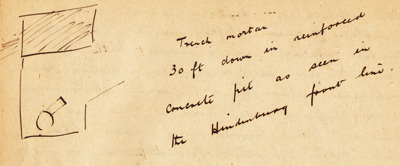 Trench mortar
30 ft down in reinforced
concrete pit as seen in
the Hindenburg front line.